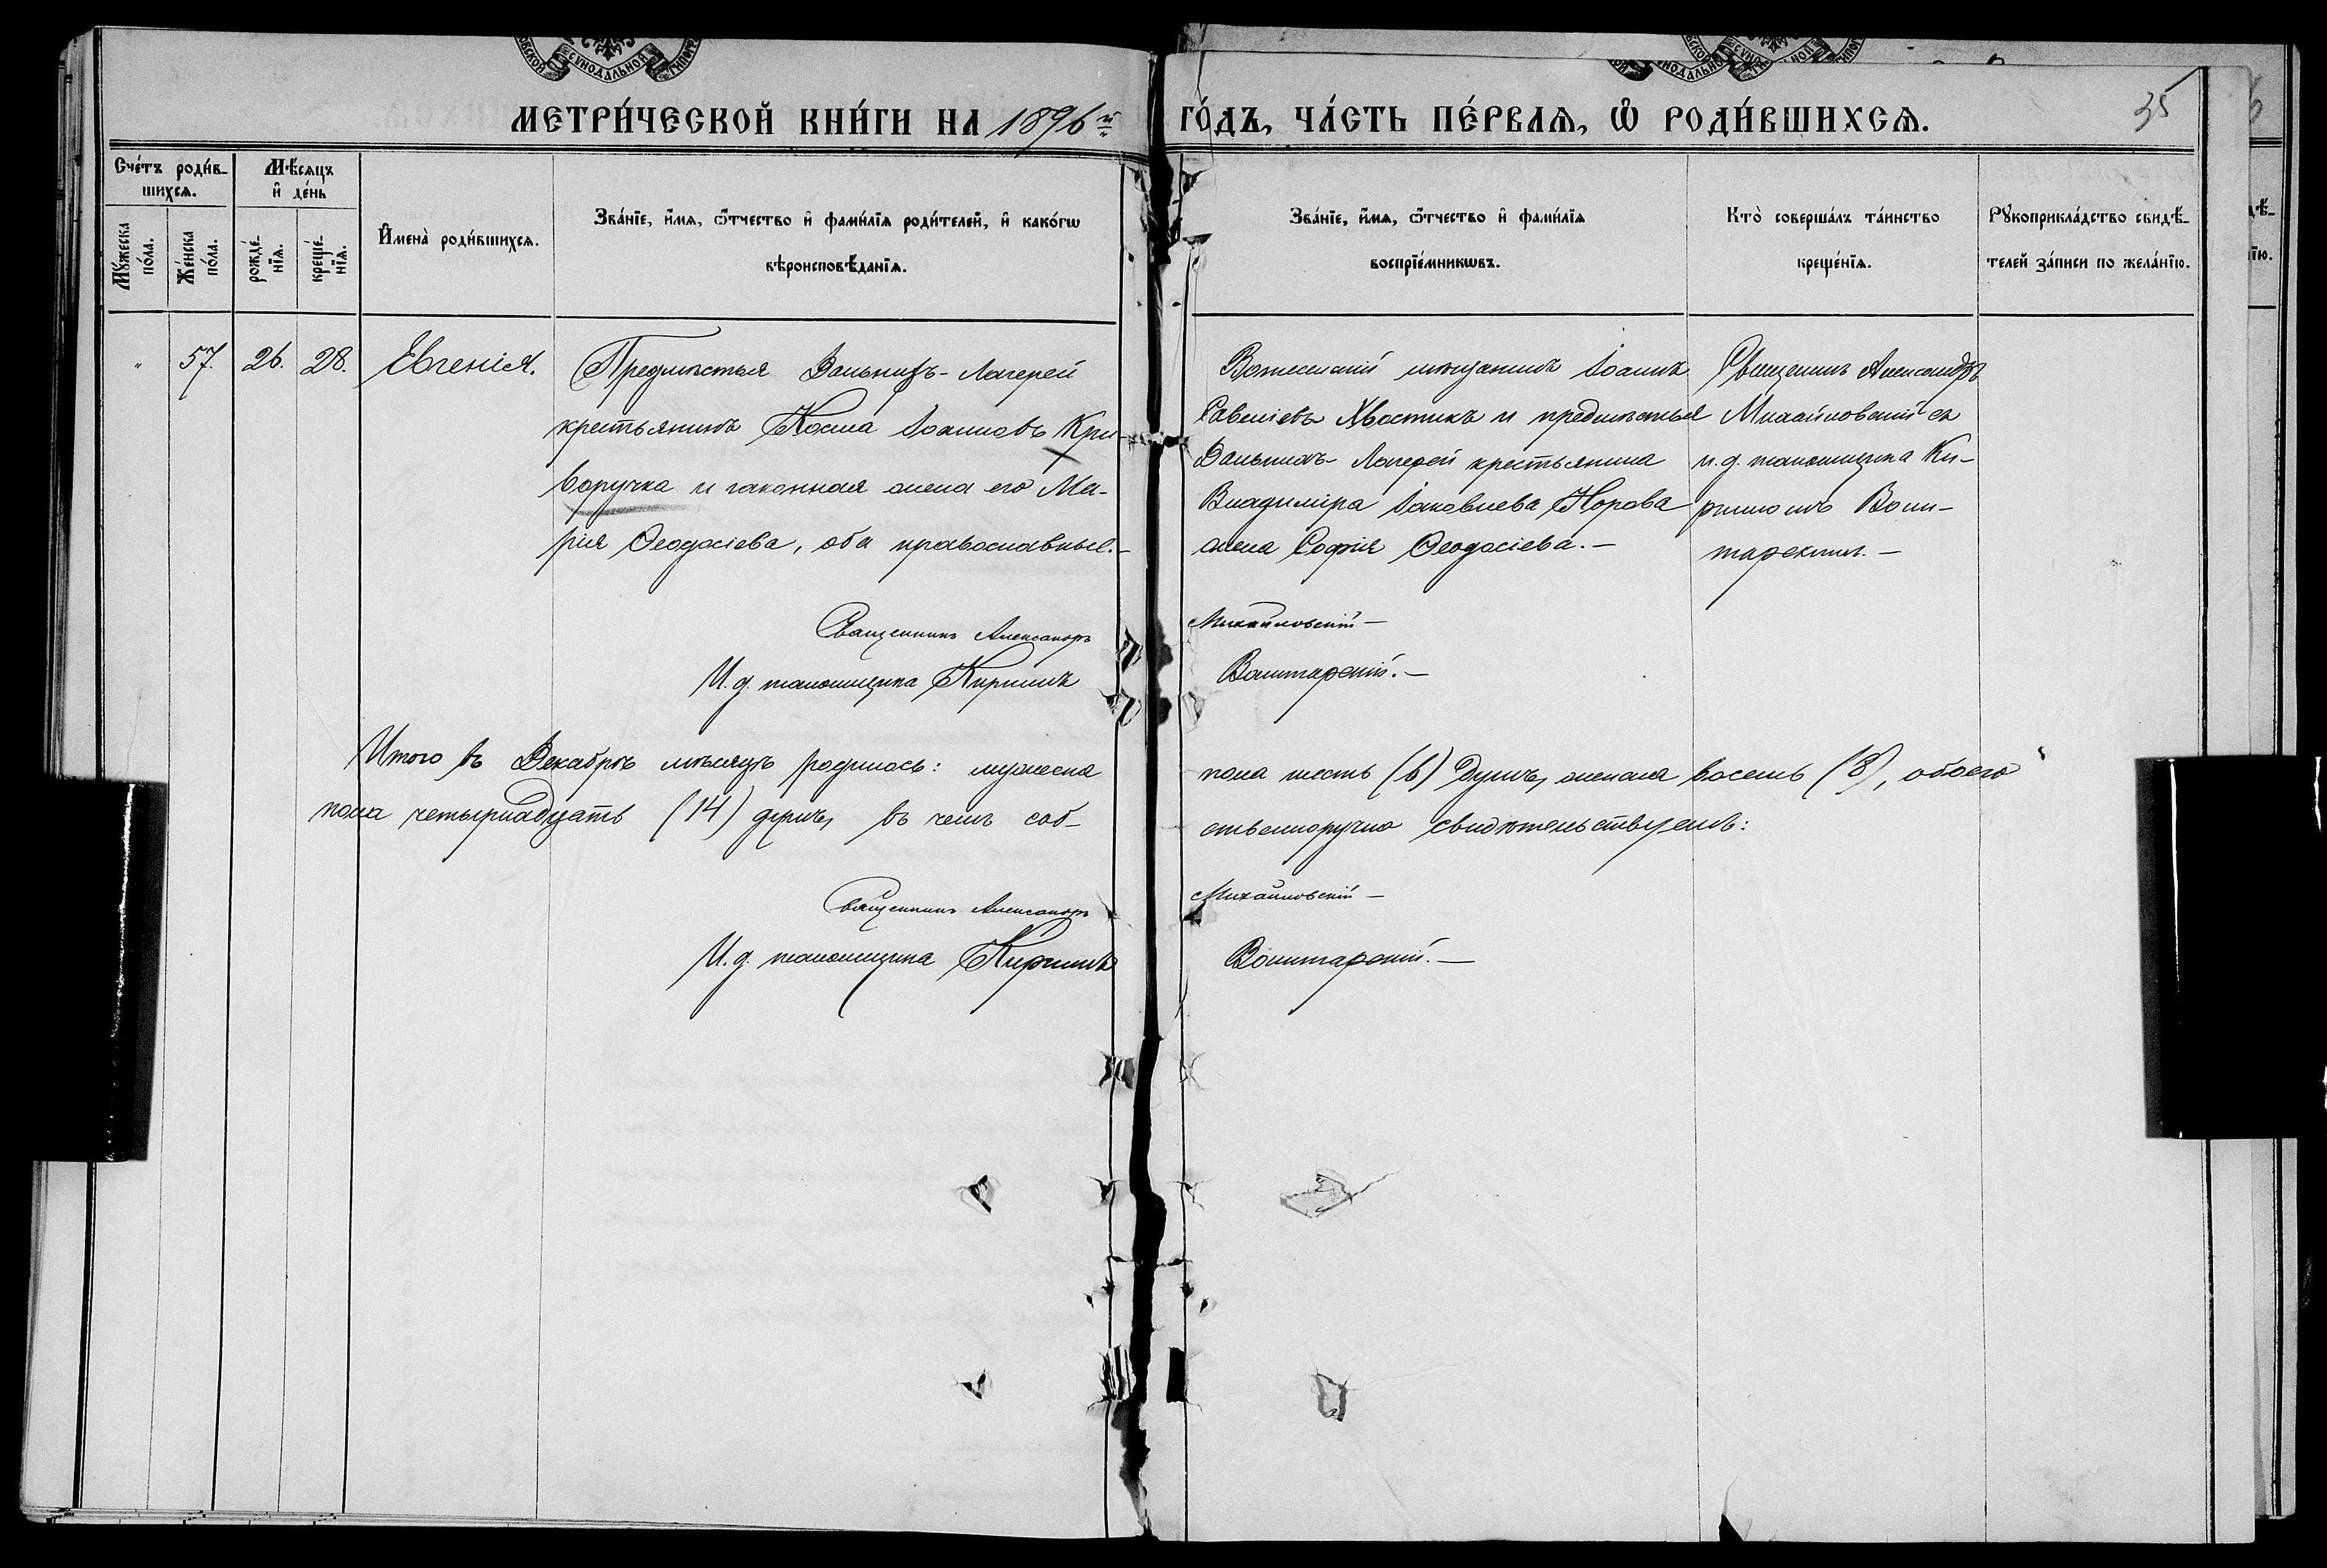 СУНОДАЛЬНОЙ
МЕТРИ́ЧЕСКОЙ КНИ́ГИ НА 1896 й
ГО́ДЪ, ЧА́СТЬ ПЕ́РВАЯ, Ѽ РОДИ́ВШИХСЯ.
35
Сче́тъ роди́в-
шихся.
Мѣ́сяцъ
и҆ де́нь
Му́жеска по́ла.
Же́нска по́ла.
рожде́-нїя.
креще́-нїя.
И҆мена̀ роди́вшихся.
Зва́нїе, и҆́мя, ѻ҆́тчество и҆ фами́лїя роди́телей, и҆ како́гѡ
вѣроисповѣ́данїя.
Зва́нїе, и҆́мя, ѻ҆́тчество и҆ фами́лїя
воспрїе́мникѡвъ.
Кто̀ соверша́лъ та́инство
креще́нїя.
Рꙋкоприкла́дство свидѣ́-
телей за́писи по жела́нїю.
" 57. 26. 28. Евгенія.
Предмѣстья Дальницъ-Лагерей
крестьянинъ Косма Іоанновъ Кри-
воручка и законная жена его Ма-
рія Ѳеодосіева, оба православные.-
мѣщанинъ Іоаннъ
Савеліевъ Хвостикъ и предмѣстья
Лагерей крестьянина
Владиміра Іаковлева Норова
жена Софія Ѳеодосіева.-
Священникъ Александръ
Михайловскій съ
и.д. псаломщика Ки-
рилломъ
Священникъ Александръ
Михайловскій-
И.д. псаломщика Кириллъ
Итого въ Декабрѣ мѣсяцѣ родилось: мужеска
пола шесть (6) душъ, женска восемь (8), обоего
пола четырнадцать (14) душъ, въ чемъ соб-
ственноручно свидѣтельствуемъ:
Священникъ Александръ
Михайловскій-
И.д. псаломщика Кириллъ